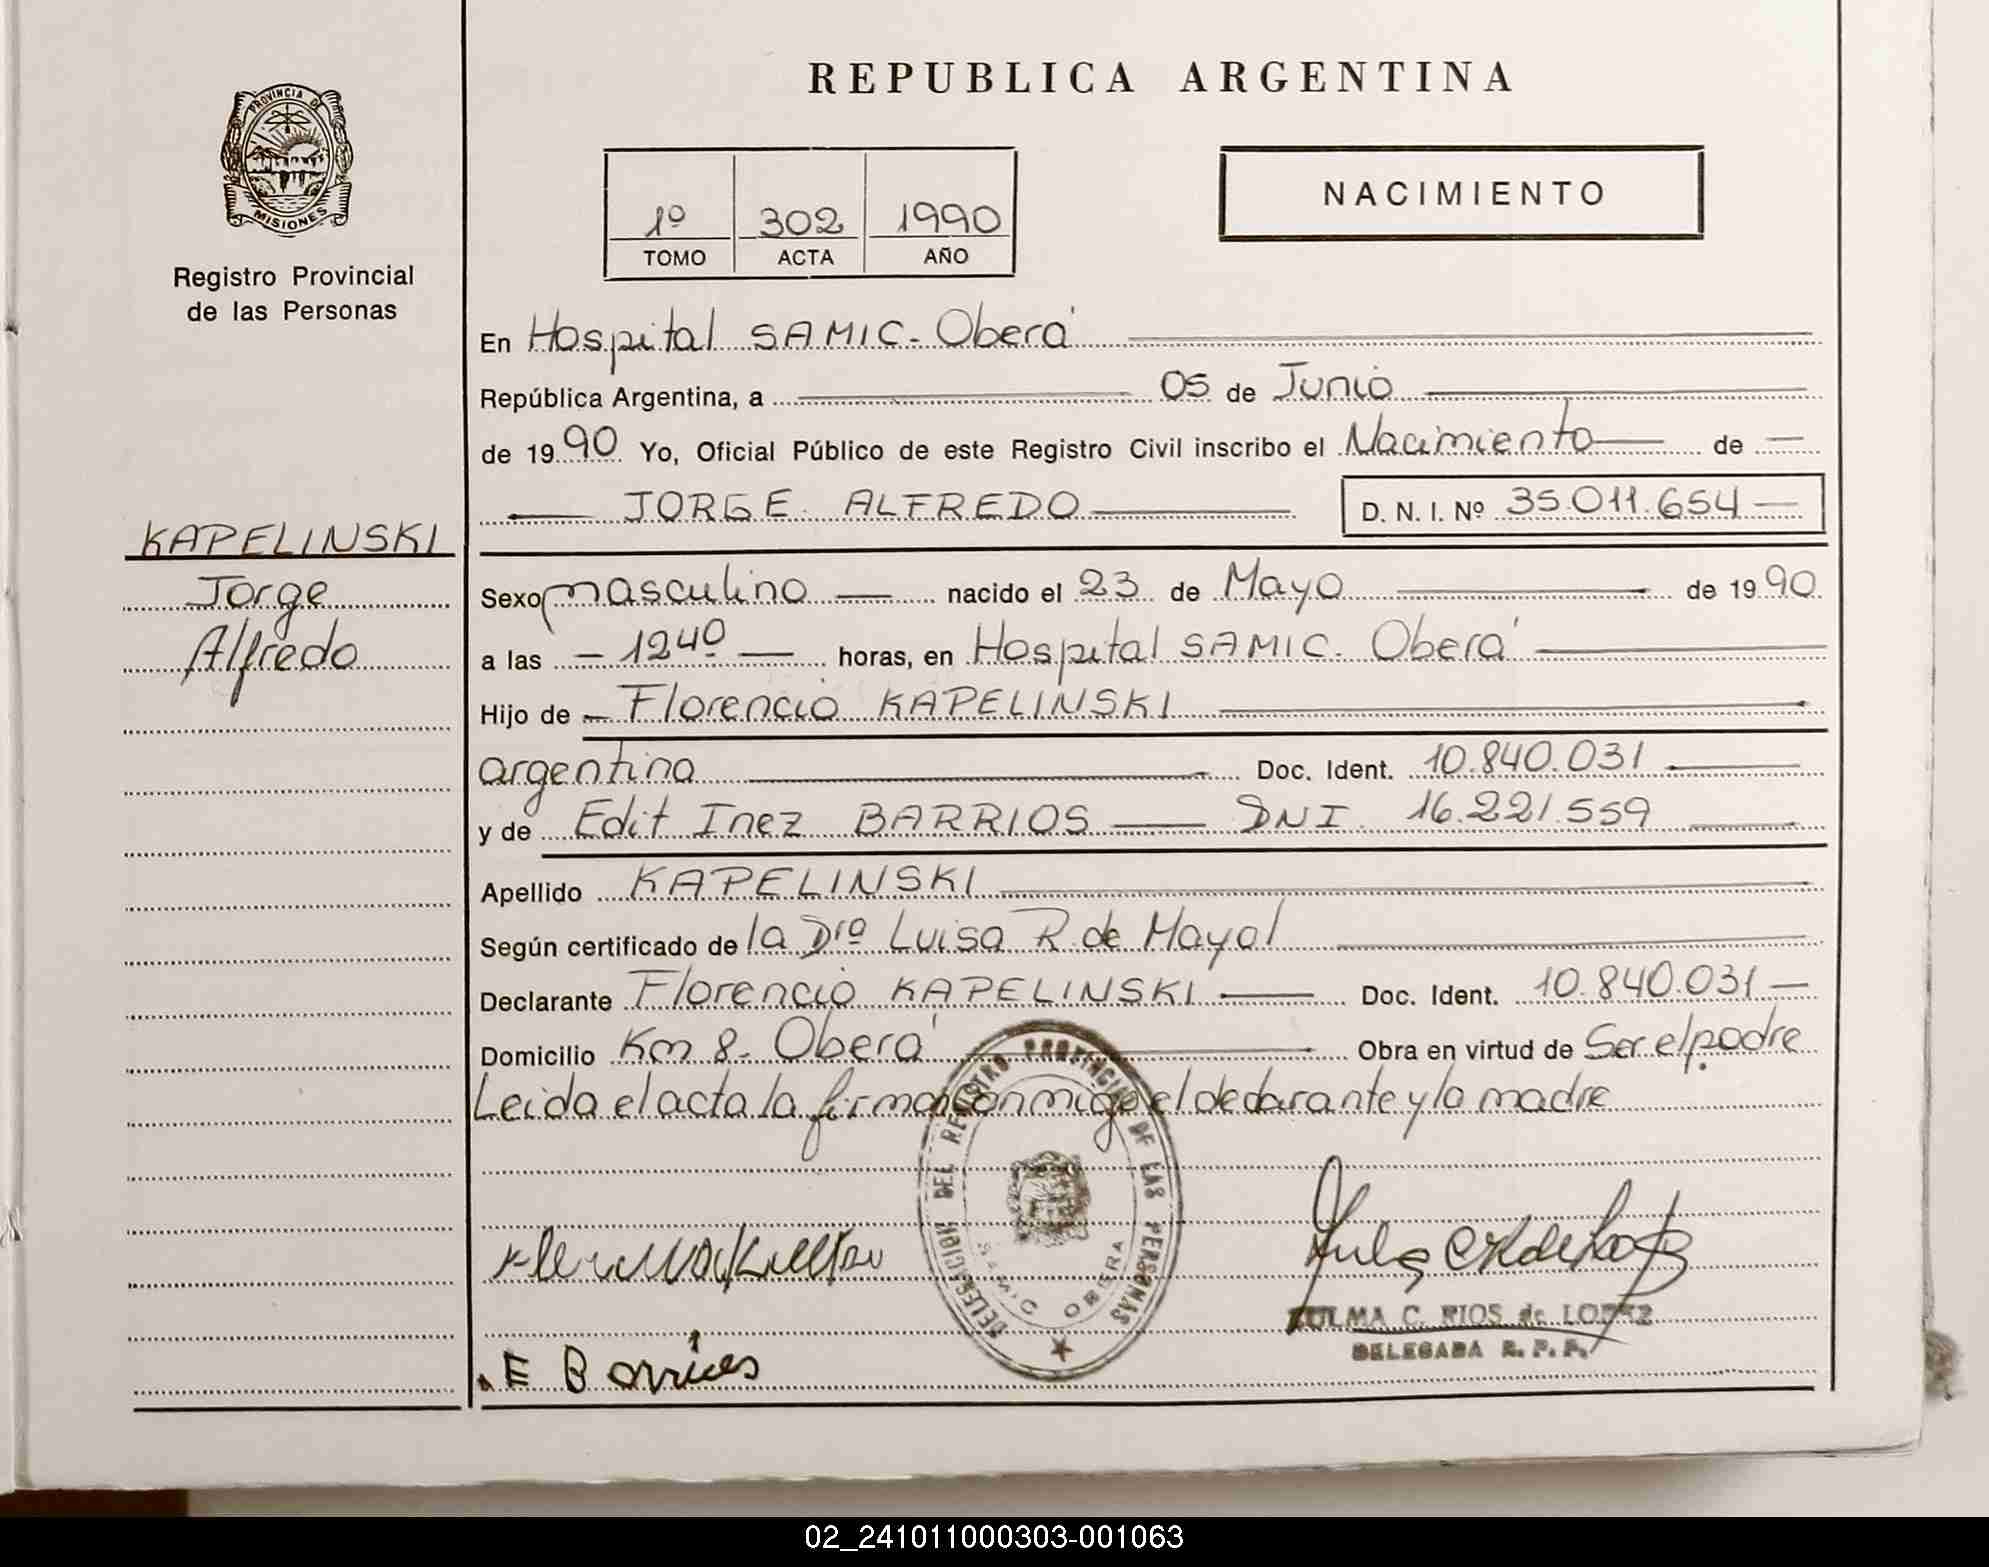 PROVINCIA DE
MISIONES
Registro Provincial
de las Personas
KAPELINSKI
Jorge
Alfredo
REPUBLICA ARGENTINA
1º 302 1990
TOMO ACTA AÑO
NACIMIENTO
En Hospital SAMIC - Oberá
República Argentina, a 05 de Junio
de 1990 Yo, Oficial Público de este Registro Civil inscribo el Nacimiento de
JORGE ALFREDO D. N. I. Nº 35.011.654
Sexo masculino nacido el 23 de Mayo de 1990
a las - 12⁴⁰ - horas, en Hospital SAMIC. Oberá
Hijo de - Florencio KAPELINSKI
argentina Doc. Ident. 10.840.031
y de Edit Inez BARRIOS DNI. 16.221.559
Apellido KAPELINSKI
Según certificado de la Dra Luisa R. de Mayol
Declarante Florencio KAPELINSKI Doc. Ident. 10.840.031
Domicilio Km 8 - Oberá Obra en virtud de Ser el padre
Leida el acta la firman conmigo el declarante y la madre
DELEGACION DEL REGISTRO PROVINCIAL DE LAS PERSONAS
SAMIC OBERA
ZULMA C. RIOS de LOPEZ
DELEGADA R. P. P.
E Barrios
02_241011000303-001063